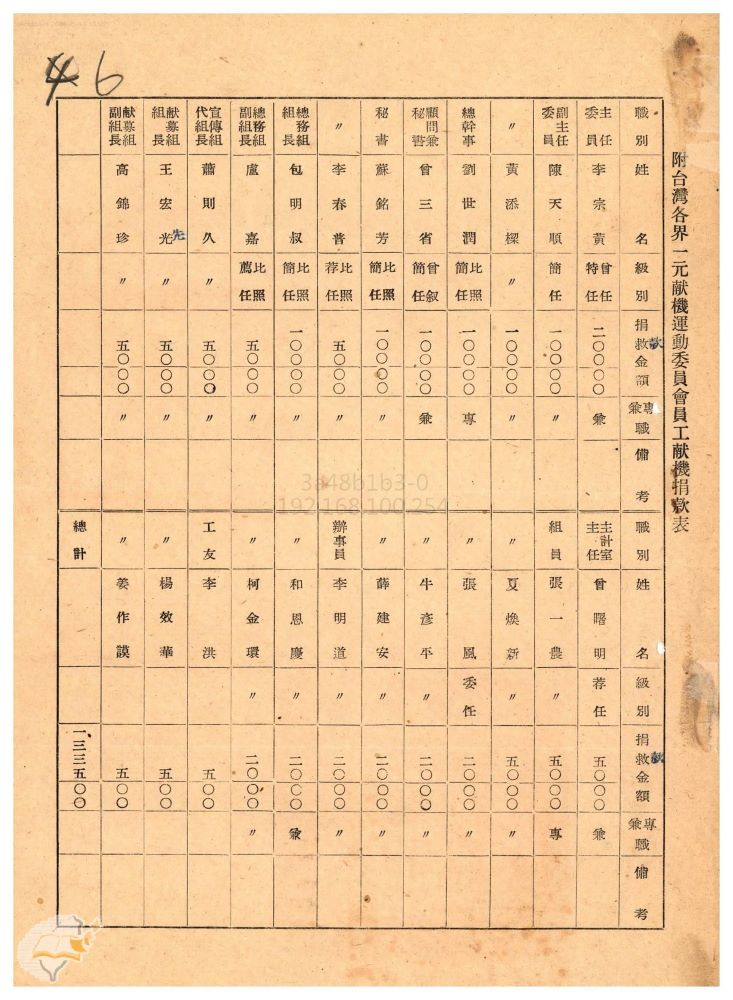 46
附台灣各界一元献機運動委員會員工献機捐款表
職別 姓名 級別 捐救金額 專兼職 備考
款
主任委員 李宗黃 曾任特任 二〇〇〇〇 兼
副主任委員 陳天順 簡任 一〇〇〇〇 〃
〃 黃添樑 〃 一〇〇〇〇 〃
總幹事 劉世潤 比照簡任 一〇〇〇〇 專
顧問兼秘書 曾三省 曾叙簡任 一〇〇〇〇 兼
秘書 蘇銘芳 比照簡任 一〇〇〇〇 〃
〃 李春普 比照荐任 五〇〇〇 〃
總務組組長 包明叔 比照簡任 一〇〇〇〇 〃
總務組副組長 盧嘉 比照薦任 五〇〇〇 〃
宣傳組代組長 蕭則久 〃 五〇〇〇 〃
献募組組長 王宏光 〃 五〇〇〇 〃
先
献募組副組長 高錦珍 〃 五〇〇〇 〃
職別 姓名 級別 捐救金額 專兼職 備考
款
主計室主任 曾曙明 荐任 五〇〇〇 兼
組員 張一農 〃 五〇〇〇 專
〃 夏煥新 〃 五〇〇〇 〃
〃 張風 委任 二〇〇〇 〃
〃 牛彥平 〃 二〇〇〇 〃
〃 薛建安 〃 二〇〇〇 〃
辦事員 李明道 〃 二〇〇〇 〃
〃 和恩慶 〃 二〇〇〇 兼
〃 柯金環 〃 二〇〇〇 〃
工友 李洪 五〇〇
〃 楊效華 五〇〇
〃 姜作謨 五〇〇
總計 一三三五〇〇
3a48b1b3-0
192.168.100.254